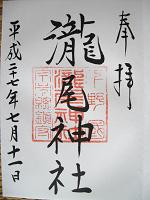 奉拝
瀧尾神社
平成二十七年七月十一日